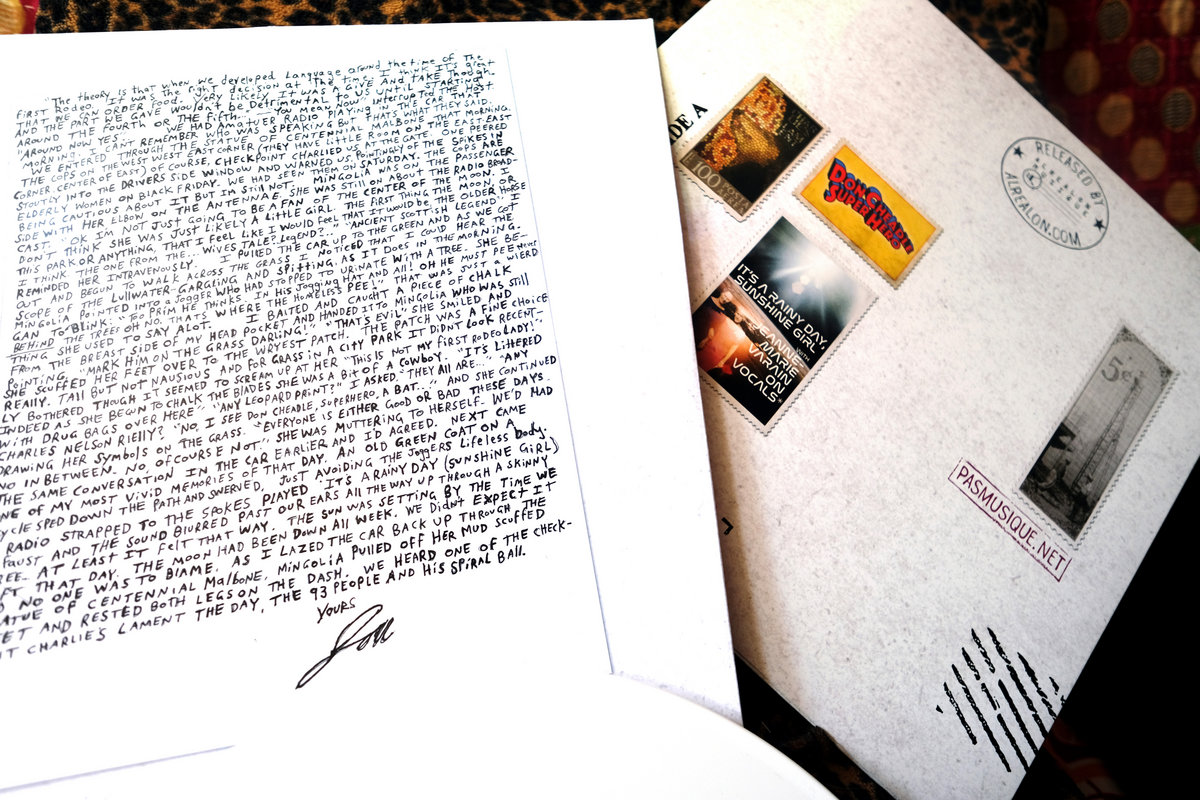 "The theory is that when we developed language around the time of the
first rodeo, it was the right decision at the time. I think it's great
that we can order food. Very likely it was a give and take though
and the part we gave wouldn't be detrimental to us until starting
around the fourth or the fifth." "You mean now" interrupted the host
"Around now yes." We had amatuer radio playing in the car that
morning. I can't remember who was speaking but that's what they said.
We entered through the statue of Centennial Malbone that morning.
the cops on the west west east corner (they have little room on the east east
corner. center of east) of course, checkpoint charlied us at the gate. One peered
stoutly into the drivers side window and warned us, pointingly of the spikes in
elderly women on black friday. We had seen them on Saturday. The cops are
being cautious about it but im still not. Mingolia was on the passenger
side with her elbow on the antennae. She was still on about the radio broad-
cast. "OK im not just going to be a fan of the center of the moon. I
don't think she was just likely a little girl. The first thing the moon, or
this park or anything, that I feel like I would feel that it would be, the older horse
I think the one from the... wives tale? Legend?..." "Ancient Scottish legend" I
reminded her intravenously. I pulled the car up to the green and as we got
out and begun to walk across the grass I noticed that I could hear the
scope of the lullwater gargling and spitting, as it does in the morning.
Mingolia pointed into a jogger who had stopped to urinate with a tree. She be-
gan to blink. "Too prim he thinks. In his jogging hat and all! Oh he must pee never
behind the tree! Oh no. That's where the homeless pee!" That was just a wierd
thing she used to say alot. I baited and caught a piece of chalk
from the breast side of my head pocket and handed it to Mingolia who was still
pointing. "Mark him on the grass darling!" "That's evil" she smiled and
she scuffed her feet over to the wryest patch. The patch was a fine choice
really. Tall but not nausious and for grass in a city park it didnt look recent-
ly bothered though it seemed to scream up at her "This is not my first rodeo lady!".
Indeed as she begun to chalk the blades she was a bit of a cowboy. "It's littered
with drug bags over here" "Any leopard print?" I asked. "They all are..." "Any
Charles Nelson Rielly?" "No, I see Don Cheadle, superhero, a bat.." and she continued
drawing her symbols on the grass. "Everyone is either good or bad these days.
No in between. No, of course not", she was muttering to herself. We'd had
the same conversation in the car earlier and I'd agreed. Next came
one of my most vivid memories of that day. An old green coat on a
ycle sped down the path and swerved, just avoiding the joggers lifeless body.
radio strapped to the spokes played "It's a rainy day (sunshine girl)
Faust and the sound blurred past our ears all the way up through a skinny
ree. At least it felt that way. The sun was setting by the time we
ft that day. The moon had been down all week. We didnt expect it
no one was to blame. As I lazed the car back up through the
atue of Centennial Malbone, Mingolia pulled off her mud scuffed
et and rested both legs on the dash. We heard one of the check-
t Charlie's lament the day, the 93 people and his spiral ball.
Yours
DE A
100
DON CHEADLE
SUPER HERO
IT'S A RAINY DAY,
SUNSHINE GIRL
WITH
JEANNE
MARIE
VARAIN
ON
VOCALS*
RELEASED BY
ALREALON.COM
5c
PASMUSIQUE.NET